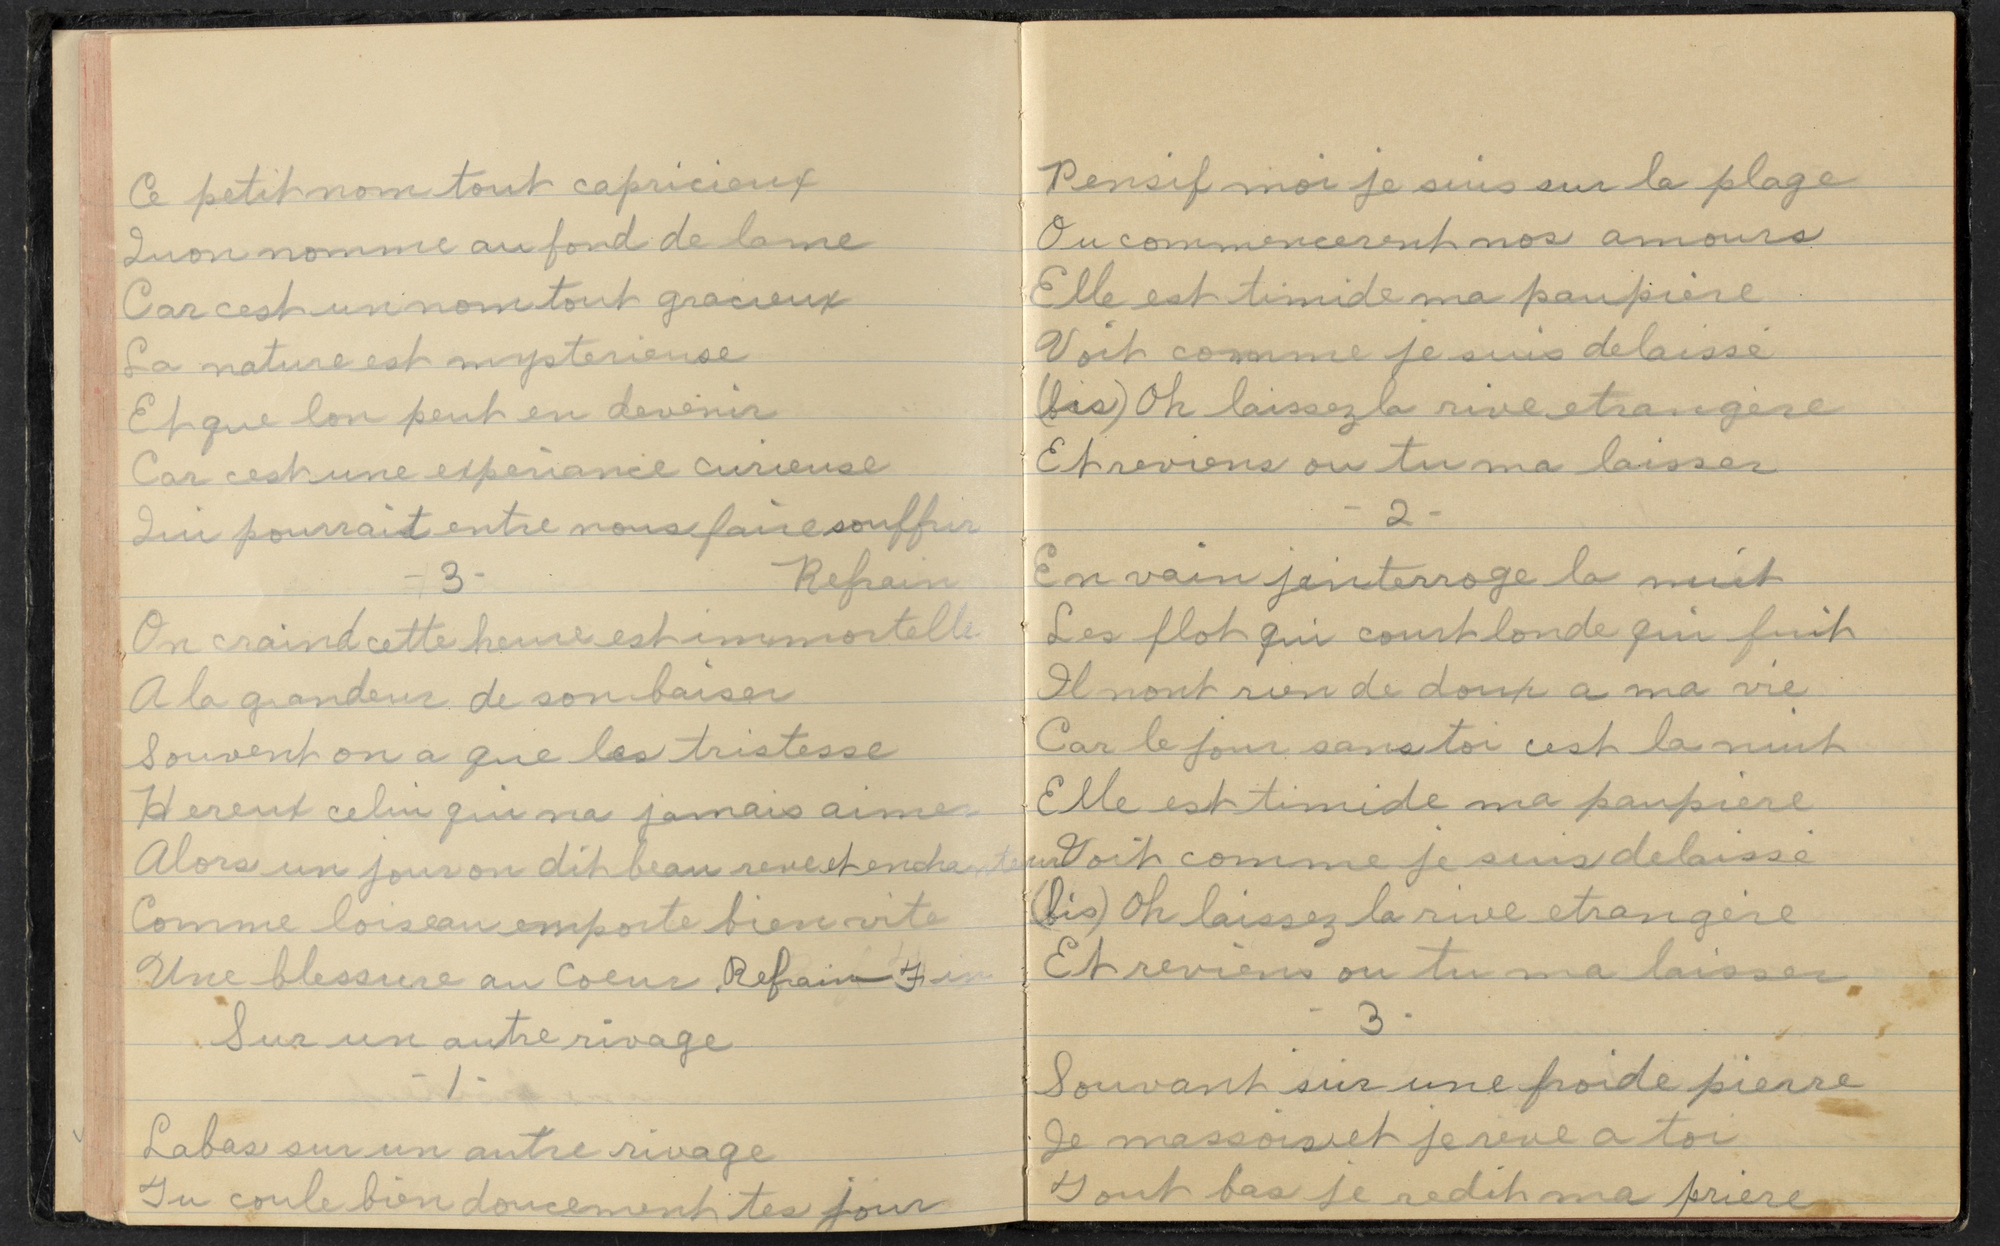 Ce petit nom tout capricieux
Quon nomme au fond de lame
Car cest un nom tout gracieux
La nature est mysterieuse
Et que lon peut en devenir
Car cest une experiance curieuse
Qui pourrait entre nous faire souffrir
- 3 - Refrain
On craind cette heure est immortelle
A la grandeur de son baiser
Souvent on a que les tristesse
Hereux celui qui na jamais aimer
Alors un jour on dit beau reve et enchanteur
Comme loiseau emporte bien vite
Une blessure au coeur Refrain Fin
Sur un autre rivage
- 1 -
Labas sur un autre rivage
Tu coule bien doucement tes jour
Pensif moi je suis sur la plage
Ou commencerent nos amours
Elle est timide ma paupière
Voit comme je suis delaissé
(bis) Oh laissez la rive etrangère
Et reviens ou tu ma laisser
- 2 -
En vain jinterroge la nuit
Les flot qui court londe qui fuit
Il nont rien de doux a ma vie
Car le jour sans toi cest la nuit
Elle est timide ma paupiere
Voit comme je suis delaissé
(bis) Oh laissez la rive etrangère
Et reviens ou tu ma laisser
- 3 -
Souvant sur une froide pierre
Je massois et je reve a toi
Tout bas je redit ma prière